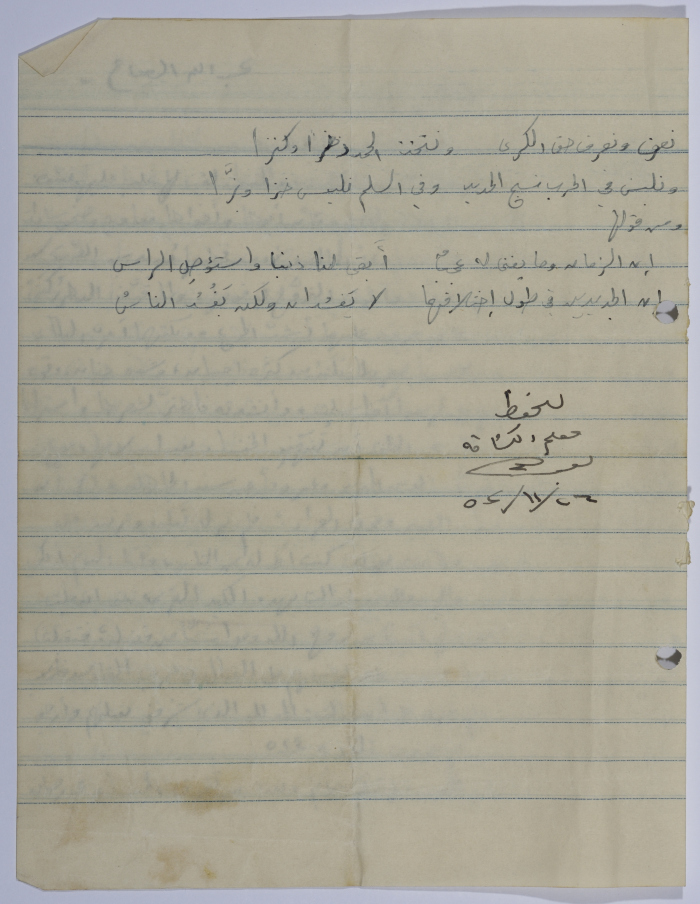 نعف ونعرف حق القرى ونتخذ الحمد ذخرا وكنزا
ونلبس في الحرب نسج الحديد وفي السلم نلبس خزا وبزّا
ومن قولها
إن الزمان وما يفنى له عجبٌ أبقى لنا ذنبا واستؤصل الراس
إن الجديدين في طول إختلافهما لا يفسدان ولكن يَفْسُد الناسُ
للحفظ
معلم